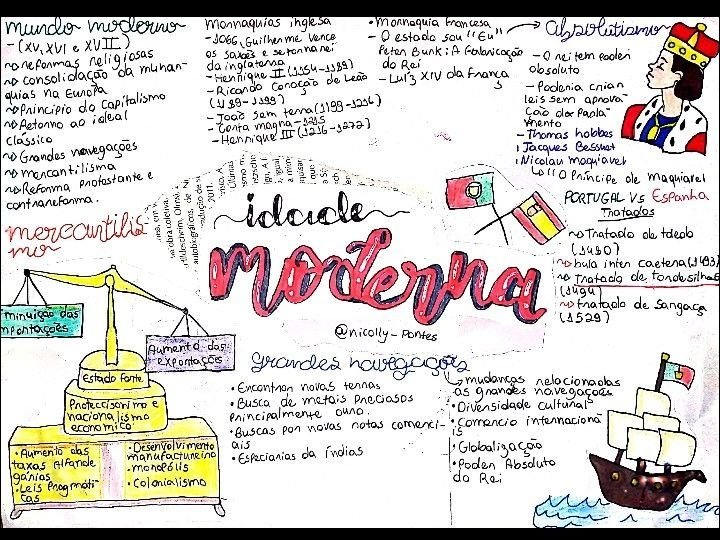 mundo moderno
-(XV, XVI e XVII)
reformas religiosas
consolidação da munan-
quias na Europa
Principio do Capitalismo
Retorno ao ideal
clássico
Grandes navegações
mercantilismo
Reforma protestante e
contrareforma.
monnaquias inglesa
-1066, Guilherme vence
os saxões e se torna rei
da inglaterra
-Henrique II (1154-1189)
-Ricardo Coração de Leão
(1189-1199)
-João Sem terra (1199-1216)
-Carta magna-1215
-Henrique III (1216-1272)
•Monnaquia francesa
-O estado sou "Eu"
Peter Burk: A fabricação
do Rei
-Luiz XIV da frança
absolutismo
-O rei tem poder
absoluto
-Poderia criar
leis sem aprova-
ção do Parla-
mento
-Thomas hobbes
Jacques Bossuet
Nicolau maquiavel
"O Principe de maquiavel
PORTUGAL VS Espanha
Tratados
Tratado de toledo
(1480)
bula inter caetera (1493)
Tratado de tordesilhas
(1494)
tratado de Saragoça
(1529)
idade
moderna
@nicolly-pontes
mercantilis
mo
minuição das
mportações
Aumento das
exportações
Estado forte
Proteccionismo e
nacionalismo
econômico
•Aumento das
taxas Alfande
gárias
•Leis Pragmáti-
cas
•Desenvolvimento
manufatureiro
-monopólis
•Colonialismo
grandes navegações
•Encontrar novas terras
•Busca de metais preciosos
principalmente ouro.
•Buscas por novas rotas comerci-
ais
•Especiarias da índias
mudanças relacionadas
as grandes navegações
•Diversidade cultural
•comercio internaciona
is
•Globalização
•Poder Absoluto
do Rei